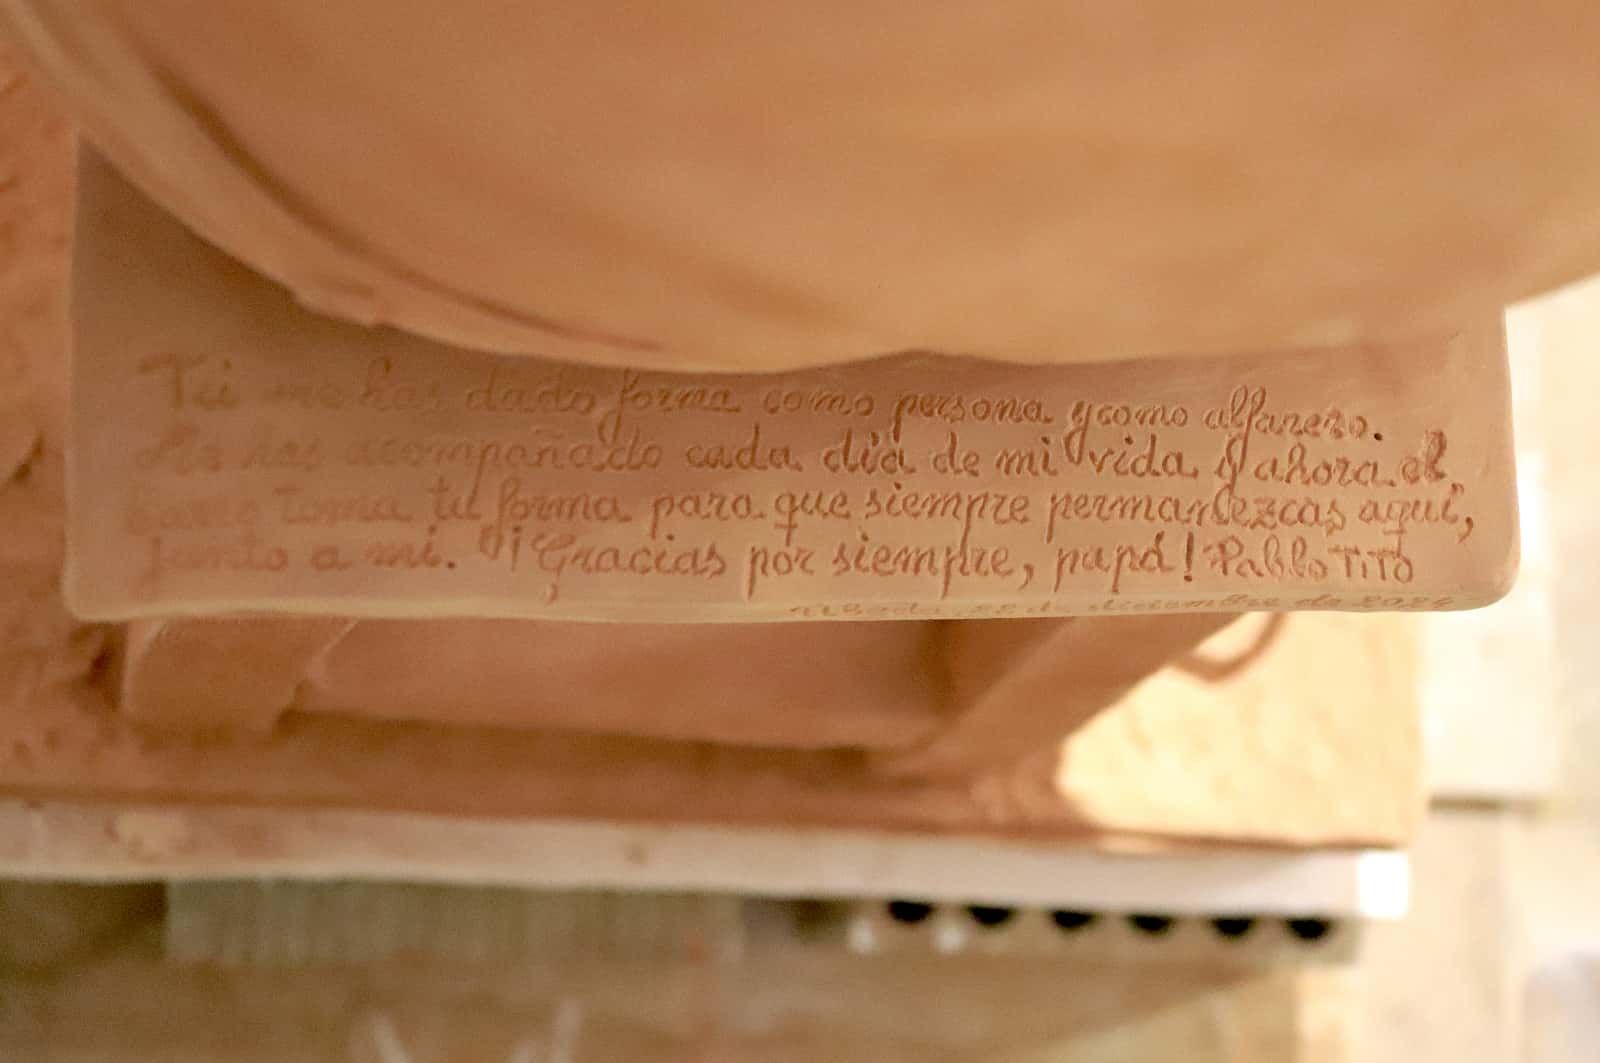 Tú me has dado forma como persona y como alfarero.
Me has acompañado cada día de mi vida y ahora el
barro toma tu forma para que siempre permanezcas aquí,
junto a mi. ¡Gracias por siempre, papá! Pablo TITO
Úbeda, 22 de diciembre de 2024